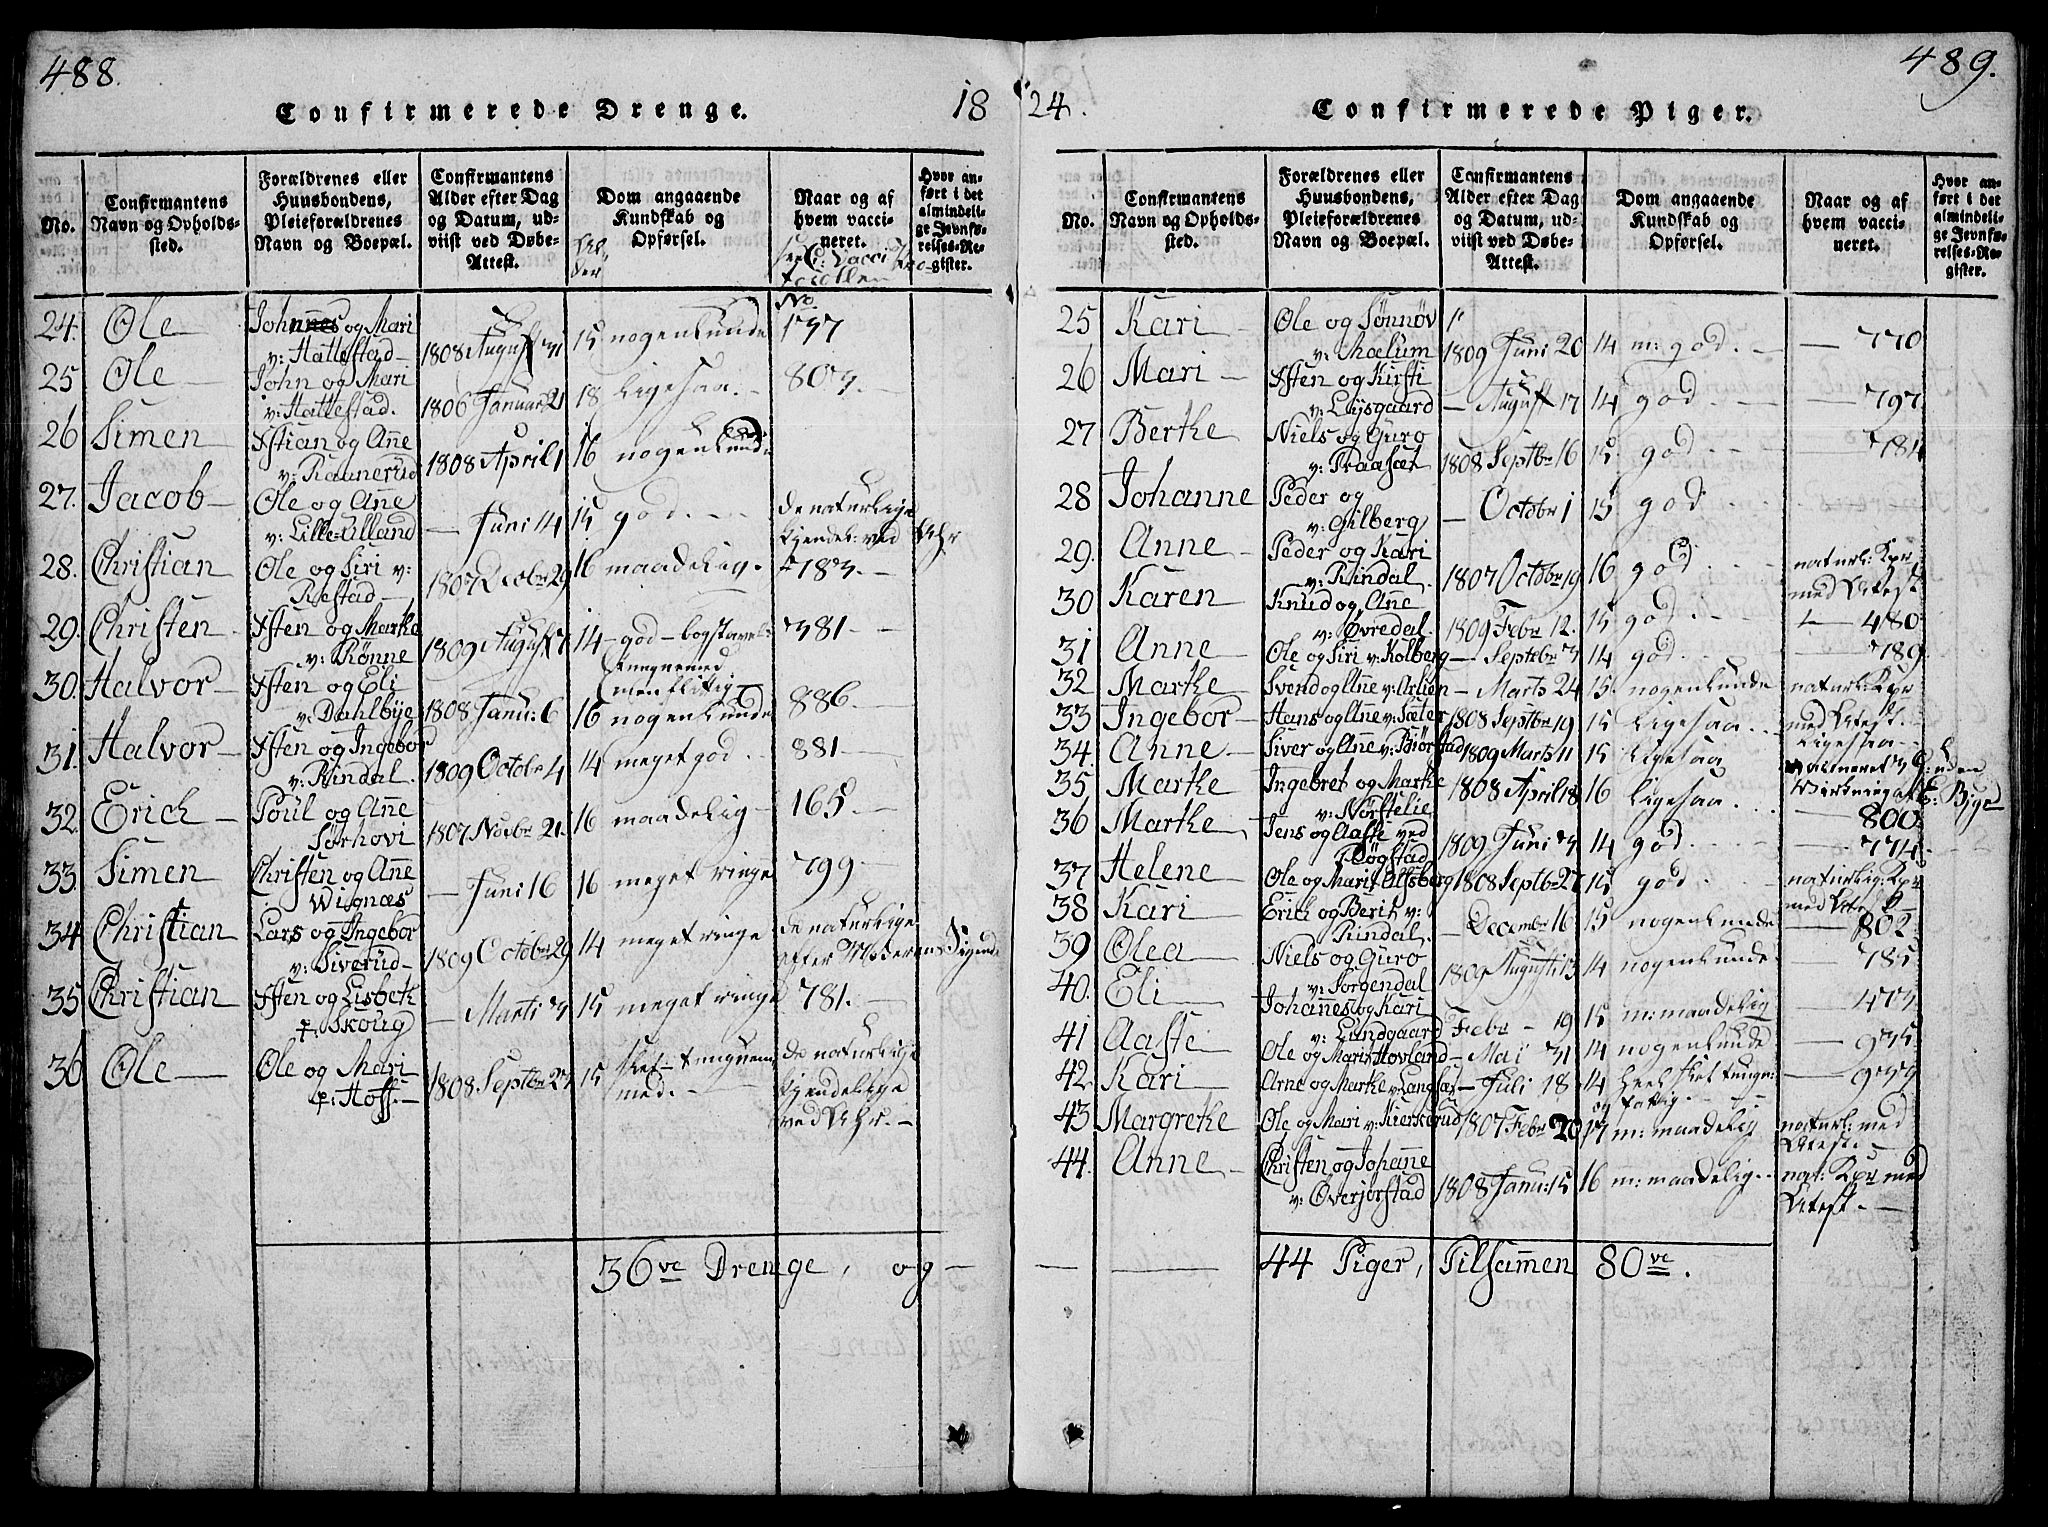 488.
Confirmerede Drenge.
18
No.
Confirmantens Navn og Opholds-sted.
Forældrenes eller Huusbondens, Pleieforældrenes Navn og Boepæl.
Confirmantens Alder efter Dag og Datum, ud-viist ved Døbe-Attest.
Dom angaaende Kundskab og Opførsel.
Naar og af hvem vacci-neret.
Hvor an-ført i det almindeli-ge Jevnfø-relses-Re-gister.
Al-der
No
24. Ole Johnnes og Mari v: Hattestad 1808 August 31 15 nogenlunde 797
25 Ole John og Mari v: Hattestad. 1806 Januar 21 18 ligesaa. 803.
26 Simen Østian og Anne v: Raanerud 1808 April 1 16 nogenlunde
27. Jacob Ole og Anne v: Lille-Ulland — Juni 14 15 god. de naturlige kjendel: ved Ahr
28. Christian Ole og Siri v: Røstad 1807 Decbr 29 16 maadelig. 783.
29. Christen Østen og Marthe v: Rønne 1809 August 7 14 god - bogstavel: 381
30. Halvor Østen og Eli v: Dahlbye 1808 Janu: 6 16 nogenlunde 886.
31. Halvor Østen og Ingebor v: Rindal. 1809 Octobr 4 14 meget god. 881
32. Erich Poul og Anne Sørhovi 1807 Novbr 21. 16 maadelig 165.
33. Simen Christen og Anne Wignæs — Juni 16 16 meget ringe 799
34 Christian Lars og Ingebor v: Siverud 1809 Octobr 29 14 meget ringe de naturlige efter Moderens Sigende
35 Christian Østen og Lisbeth p. Skoug — Marti 3 15 meget ringe 781.
36 Ole Ole og Mari p. Hoff. 1808 Septbr 27 15 slet - tungnem med. de naturlige kjendelige ved Ahr.
36ve Drenge, og
489.
24.
Confirmerede Piger.
No.
Confirmantens Navn og Opholds-sted.
Forældrenes eller Huusbondens, Pleieforældrenes Navn og Boepæl.
Confirmantens Alder efter Dag og Datum, ud-viist ved Døbe-Attest.
Dom angaaende Kundskab og Opførsel.
Naar og af hvem vacci-neret.
Hvor an-ført i det almindeli-ge Jevnfø-relses-Re-gister.
25 Kari Ole og Sønnøv v: Mælum 1809 Juni 20 14 m: god. 770
26 Mari Østen og Kirsti v: Lysgaard — August 17 14 god 797
27 Berthe Niels og Guro v: Praasæt 1808 Septbr 16 15. god 784
28 Johanne Peder og v: Gilberg — Octobr 1 15 god
29. Anne Peder og Kari v: Rindal. 1807 Octobr 19 16 god naturl: Kpr med Attest
30 Karen Knud og Anne v: Øvredal. 1809 Febr 12. 15 god 480
31 Anne Ole og Siri v: Kolberg — Septebr 3 14 god 789
32 Marthe Svend og Anne v: Orlien — Marts 24 15. nogenlunde naturl: Kpr med Attest.
33 Ingebor Hans og Anne v: Sæter 1808 Septbr 19 15 ligesaa ligesaa
34. Anne Siver og Anne v: Biørstad 1809 Marts 11 15 ligesaa
35 Marthe Ingebret og Marthe v: Nørstelie 1808 April 18 16 ligesaa 800
36 Marthe Jens og Aaste ved Pløgstad 1809 Juni 3 14 god 774
37 Helene Ole og Marit Ulfsberg 1808 Septbr 27 15 god naturlig: Kpr med Attest
38 Kari Erich og Berit v: Rindal. — Decembr 16 15 nogenlunde 802
39 Olea Niels og Guro v: Sorgendal 1809 August 13 14 nogenlunde 785
40. Eli Johannes og Kari v: Lundgaard Febr — 19 15 m: maadelig 403
41 Aaste Ole og Marit Hovland — Mai 31 14 nogenlunde 935
42 Kari Arne og Marthe v: Langsæt — Juli 18 14 heel slet tungn: og fattig. 979
43 Margrethe Ole og Mari v: Kierkerud 1807 Febr 20 17 m: maadelig naturl: med Attest.
44. Anne Christen og Johanne v: Øverjorstad 1808 Janu: 15 16 m: maadelig nat: Kpr med Attest.
44 Piger, Tilsammen 80ve.